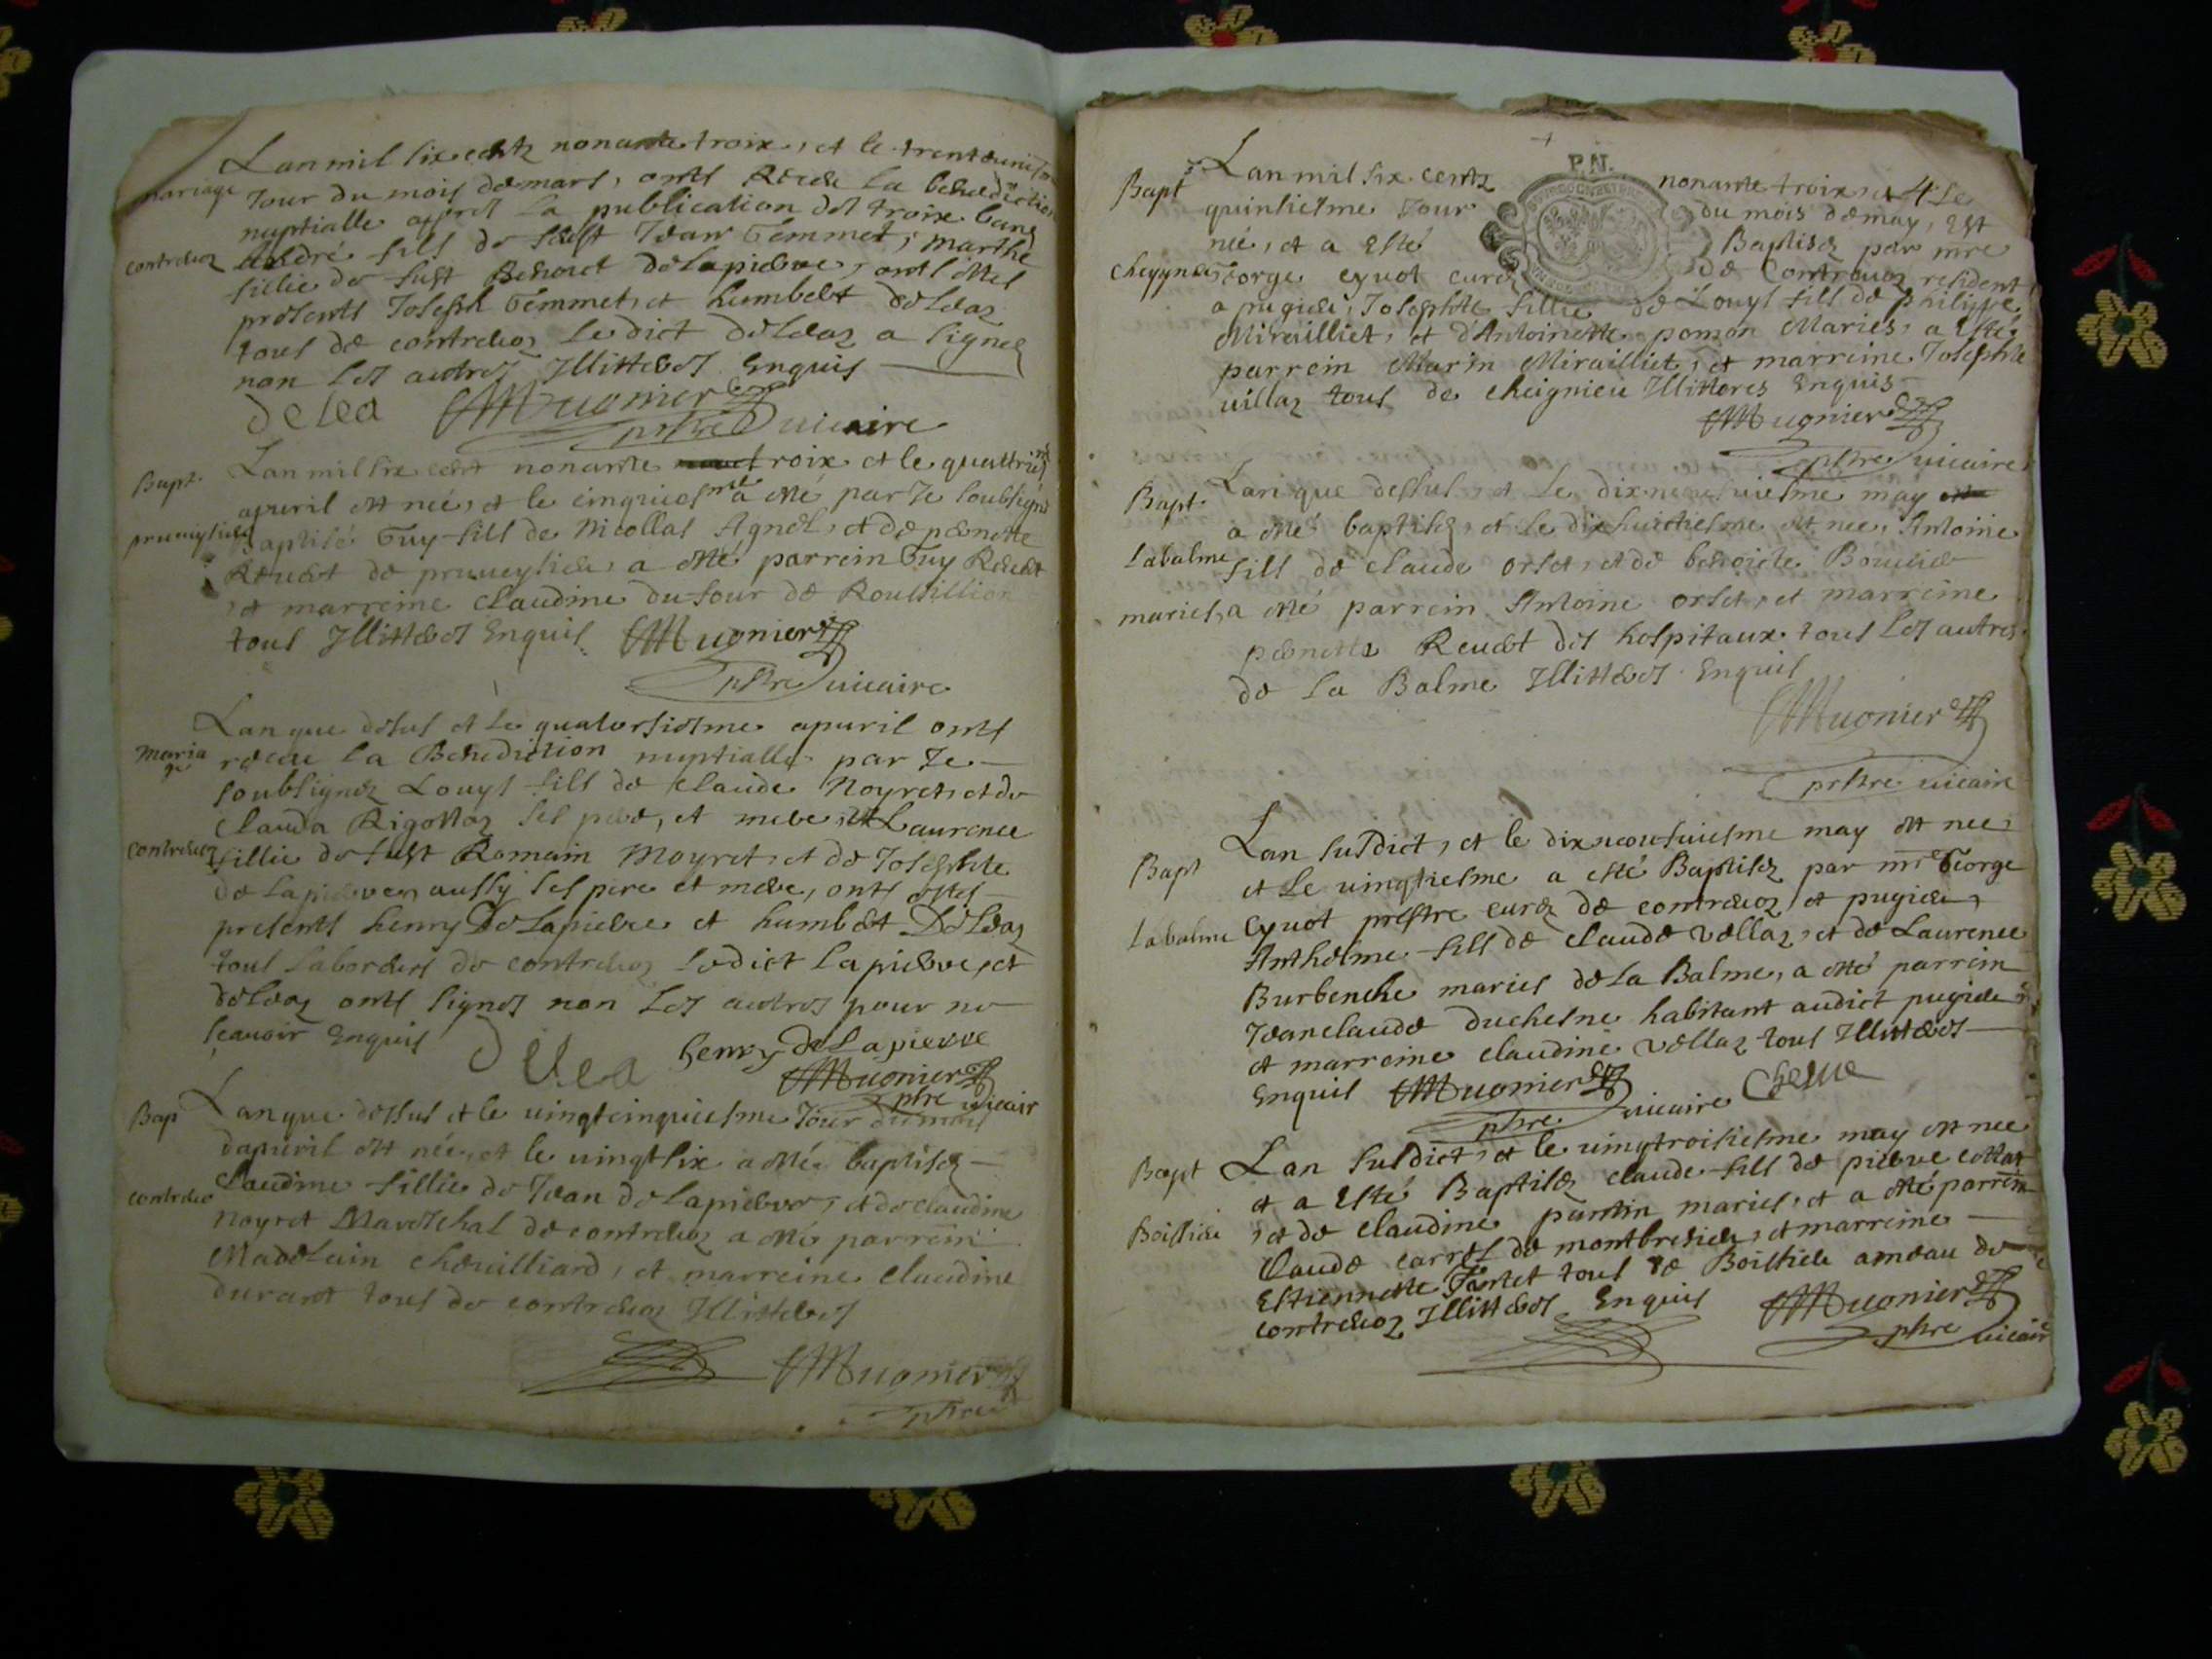 Lan mil six centz nonante troix, et le trenteunies
mariage Jour du mois de mars, onts Receu la benediction
nuptialle apres la publication des troix bans
contrevoz André fils de fust Jean Gemmet, Marthe
fillie de fust Benoict delapierre, onts estes
presents Joseph Gemmet, et humbert deleaz
tous de contrevoz ledict deleaz a signez
non les autres Illitteres Enquis
delea Mugnier
pstre vicaire
Bapt. Lan mil six cent nonante troix et le quattriesme
apvril est neé, et le cinquiesme a esté par Je soubsigné
Baptisé Guy fils de Nicollas Agnel, et de pernette
Revert de a esté parrein Guy Revert
et marreine Claudine dufour de Roussillion
tous Illitteres Enquis. Mugnier
pstre vicaire
Lan que desus et le quatorsiesme apvril onts
maria
ge receu la Benediction nuptialle par Je
soubsignez Louys fils de Claude Noyret, et de
Clauda Rigottaz ses pere, et mere, et Laurence
contrevoz fillie de fust Romain Moyret, et de Josephte
delapierre, aussy ses pere et mere, onts estes
presents henry Delapierre et humbert Deleaz
tous laboreurs de contrevoz ledict lapierre, et
deleaz onts signes non les autres pour ne
sçavoir Enquis
delea henry delapierre
Mugnier
pstre vicair
Bap Lan que dessus et le vingtcinquiesme Jour du mois
dapvril est neé, et le vingtsix a esté baptisez
contrevo Claudine fillie de Jean delapierre, et de claudine
Noyret Mareschal de contrevoz a esté parrein
Madelain chevalliard, et marreine Claudine
durant tous de contrevoz Illitteres
Mugnier
pstre
P.N.
Bapt Lan mil six centz nonante troix, et le
quinsiesme Jour du mois de may, est
neé, et a esté Baptisez par mre
George cyvot curé de Contrevoz resident
a pugieu, Josephte fillie de Louys fils de philippe
Mirailliet, et d'Antoinette pomon Maries, a esté
parrein Marin Mirailliet, et marreine Josephte
villaz tous de cheignieu Illitteres Enquis
Mugnier
pstre vicaire
Bapt. Lan que dessus, et le dixneufviesme may
a esté baptisez, et le dixhuictiesme est nee, Antoine
Labalme fils de Claude orset, et de benoicte Bouvier
maries, a esté parrein Antoine orset, et marreine
pernette Revert des hospitaux tous les autres
de la Balme Illitteres Enquis
Mugnier
prstre vicaire
Lan susdict, et le dixneufviesme may est nee
Bapt et le vingtiesme a esté Baptisez par mre George
Labalme Cyvot prestre curez de contrevoz et pugieu,
Anthelme fils de Claude vellaz, et de Laurence
Burbenche maries de la Balme, a esté parrein
Jeanclaude duchesne habitant audict pugieu
et marreine claudine vellaz tous Illitteres
Enquis Mugnier
pstre vicaire
Bapt Lan susdict, et le vingtroisiesme may est nee
et a esté Baptisez claude fils de pierre
Boissieu et de claudine pantin maries, et a esté parrein
Claude carrel de montbresieu, et marreine
Estiennette tous de Boissieu ameau de
contrevoz Illitteres Enquis Mugnier
pstre vicaire